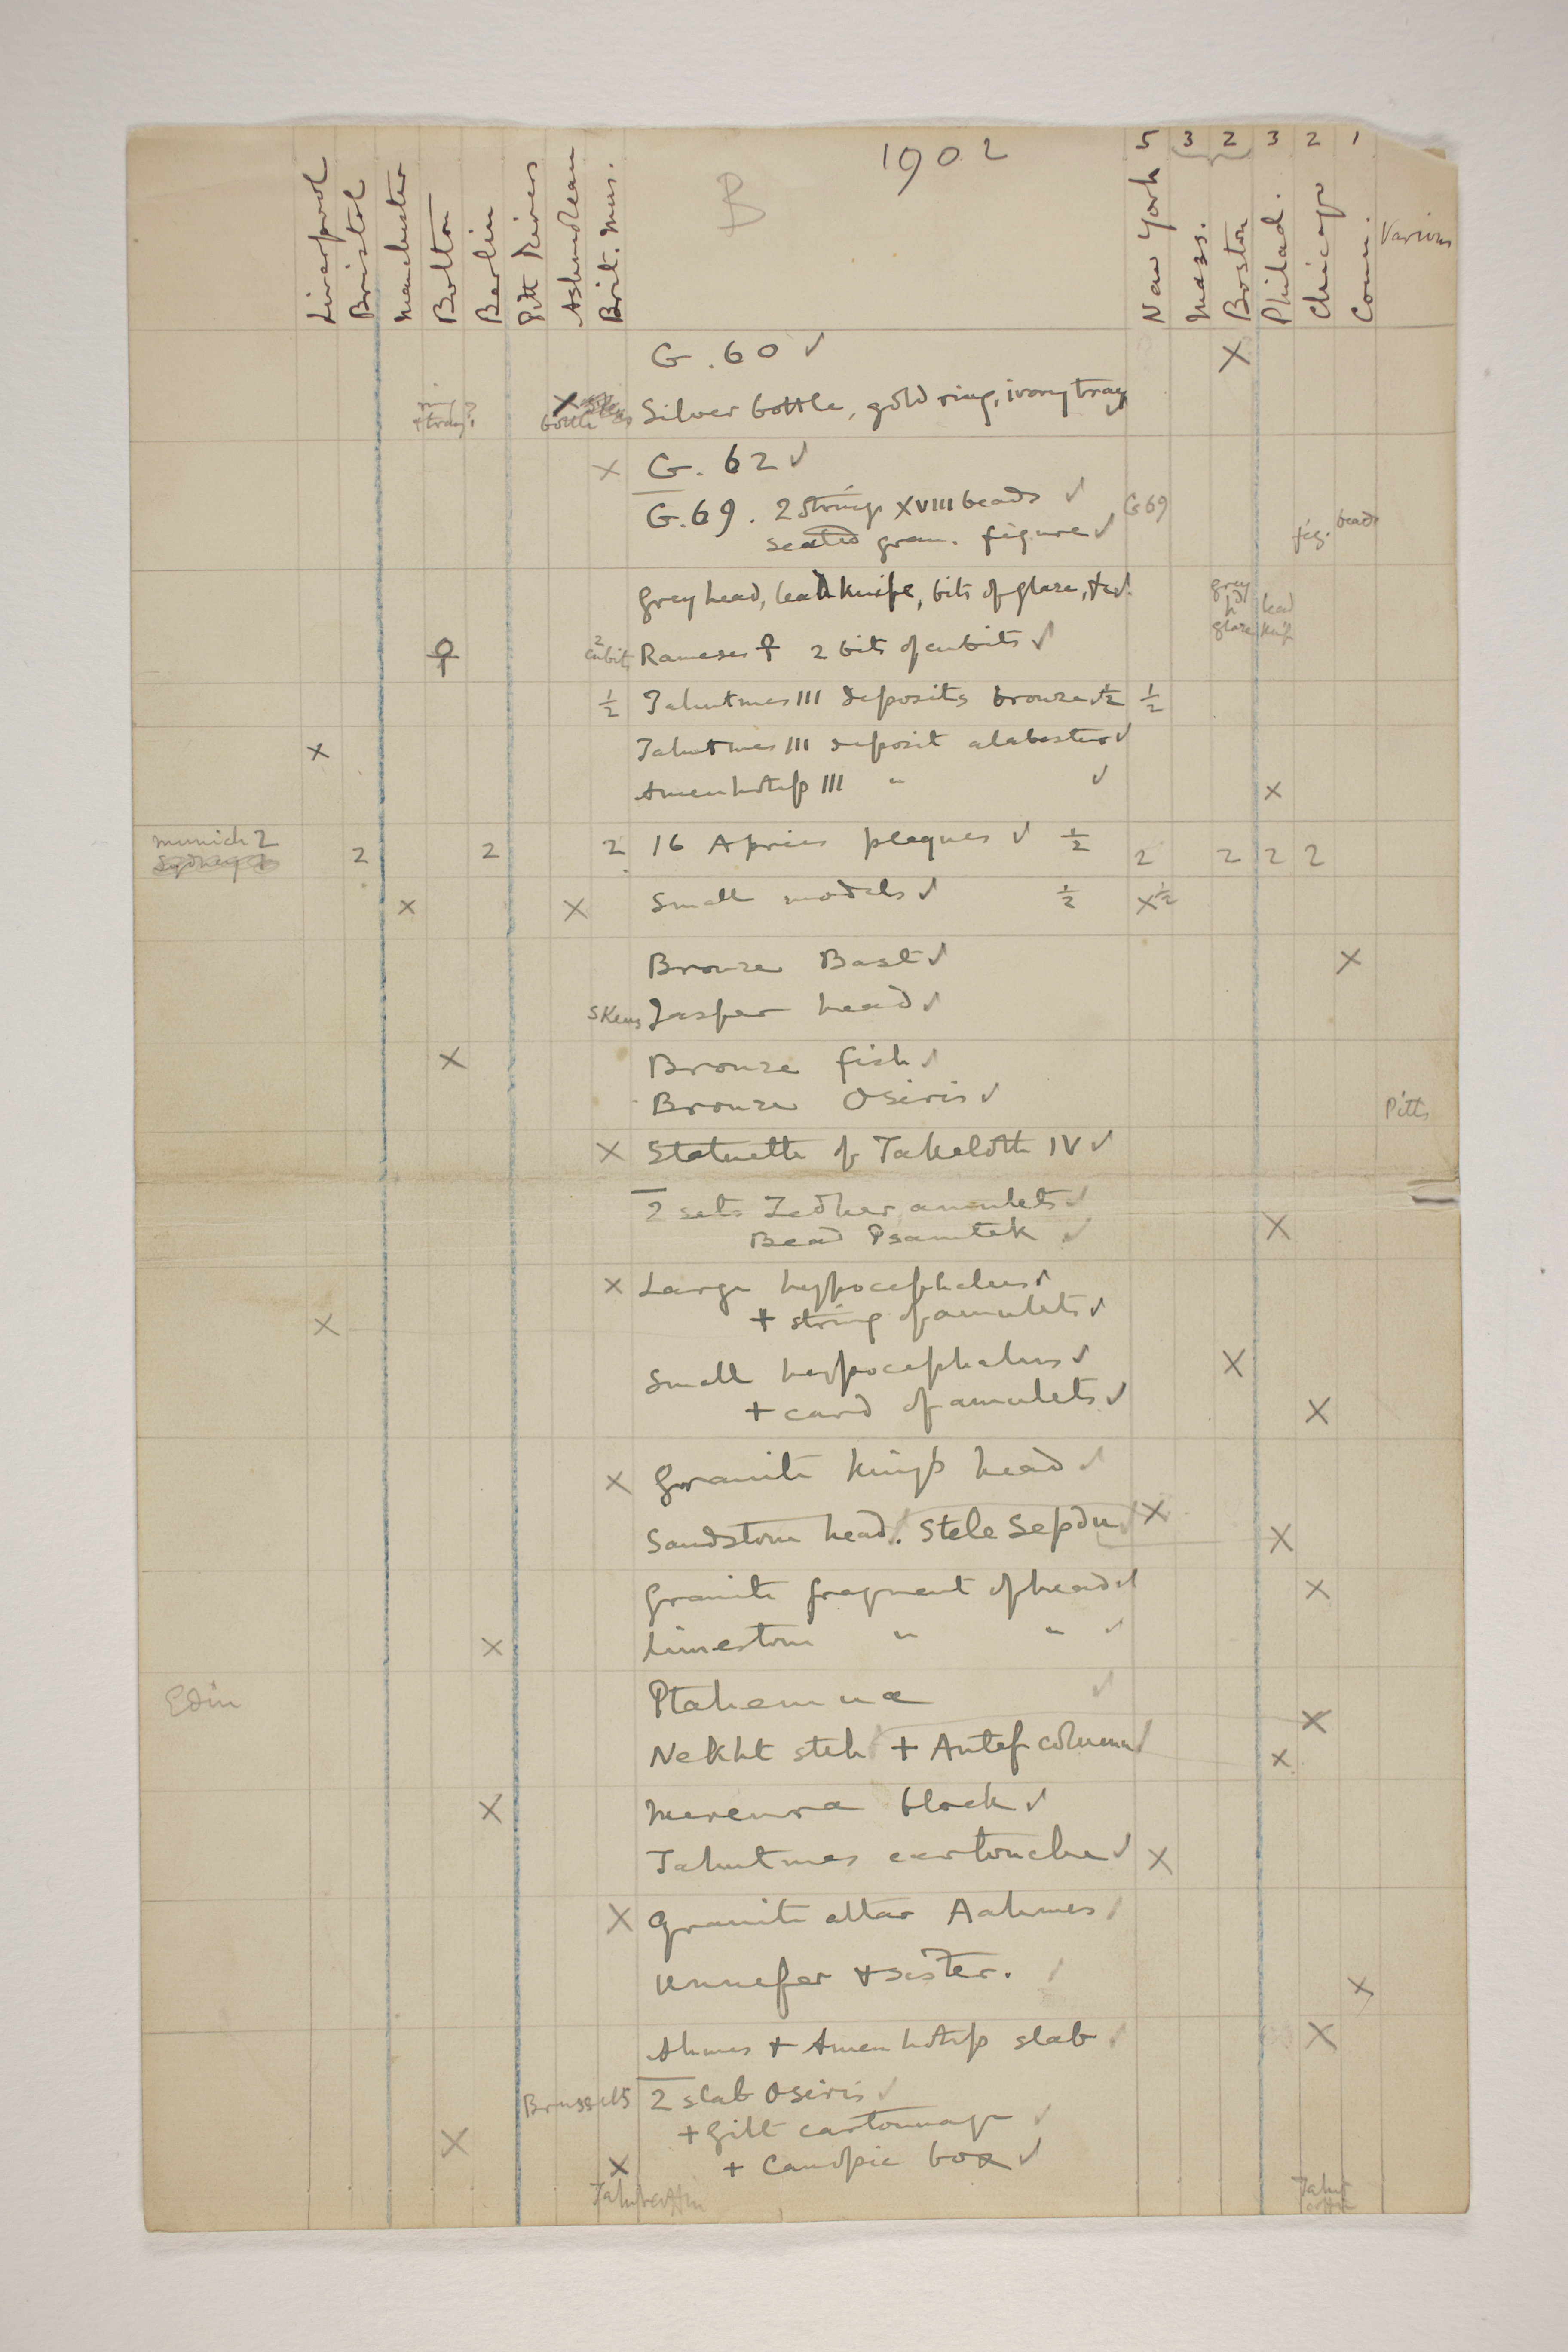 1902
B
5 3 2 3 2 1
Liverpool Bristol Manchester Bolton Berlin Pitt Rivers Ashmolean Brit. Mus. New York Mass. Boston Philad. Chicago Conn. Various
G. 60 ✓ X
ring? + tray? X bottle Silver bottle, gold ring, ivory tray ✓
X G. 62 ✓
G. 69. 2 strings XVIII beads ✓ G 69
seated gran. figure ✓ fig. beads
Grey head, lead knife, bits of glaze, + ✓ grey h glaze lead knife
♀ 2 cubits Rameses ♀ 2 bits of cubits ✓
½ Tahutmes III deposits bronze ✓ ½ ½
X Tahutmes III deposit alabaster ✓
Amenhotep III " ✓ X
Munich 2
Sydney 1 2 2 2 16 Apries plaques ✓ ½ 2 2 2 2
X X Small models ✓ ½ X ½
Bronze Bast ✓ X
Skeus Jasper head ✓
X Bronze fish ✓
Bronze Osiris ✓ Pitts
X Statuette of Takeloth IV ✓
2 sets Zedher amulets ✓
Bead Psamtek ✓ X
X Large hypocephalus ✓
X + string of amulets ✓
Small hypocephalus ✓ X
+ card of amulets ✓ X
X Granite king's head ✓
Sandstone head ✓. Stele Sepdu ✓ X X
Granite fragment of head ✓ X
X Limestone " " ✓
Edin Ptahemua ✓
Nekht stele + Antef column ✓ X X
X Merenra block ✓
Tahutmes cartouche ✓ X
X Granite altar Aahmes ✓
Unnefer + sister. ✓ X
Ahmes + Amenhotep slab ✓ X
Brussels 2 slab Osiris ✓
X + Gilt cartonnage ✓
X + Canopic box ✓
Tahut